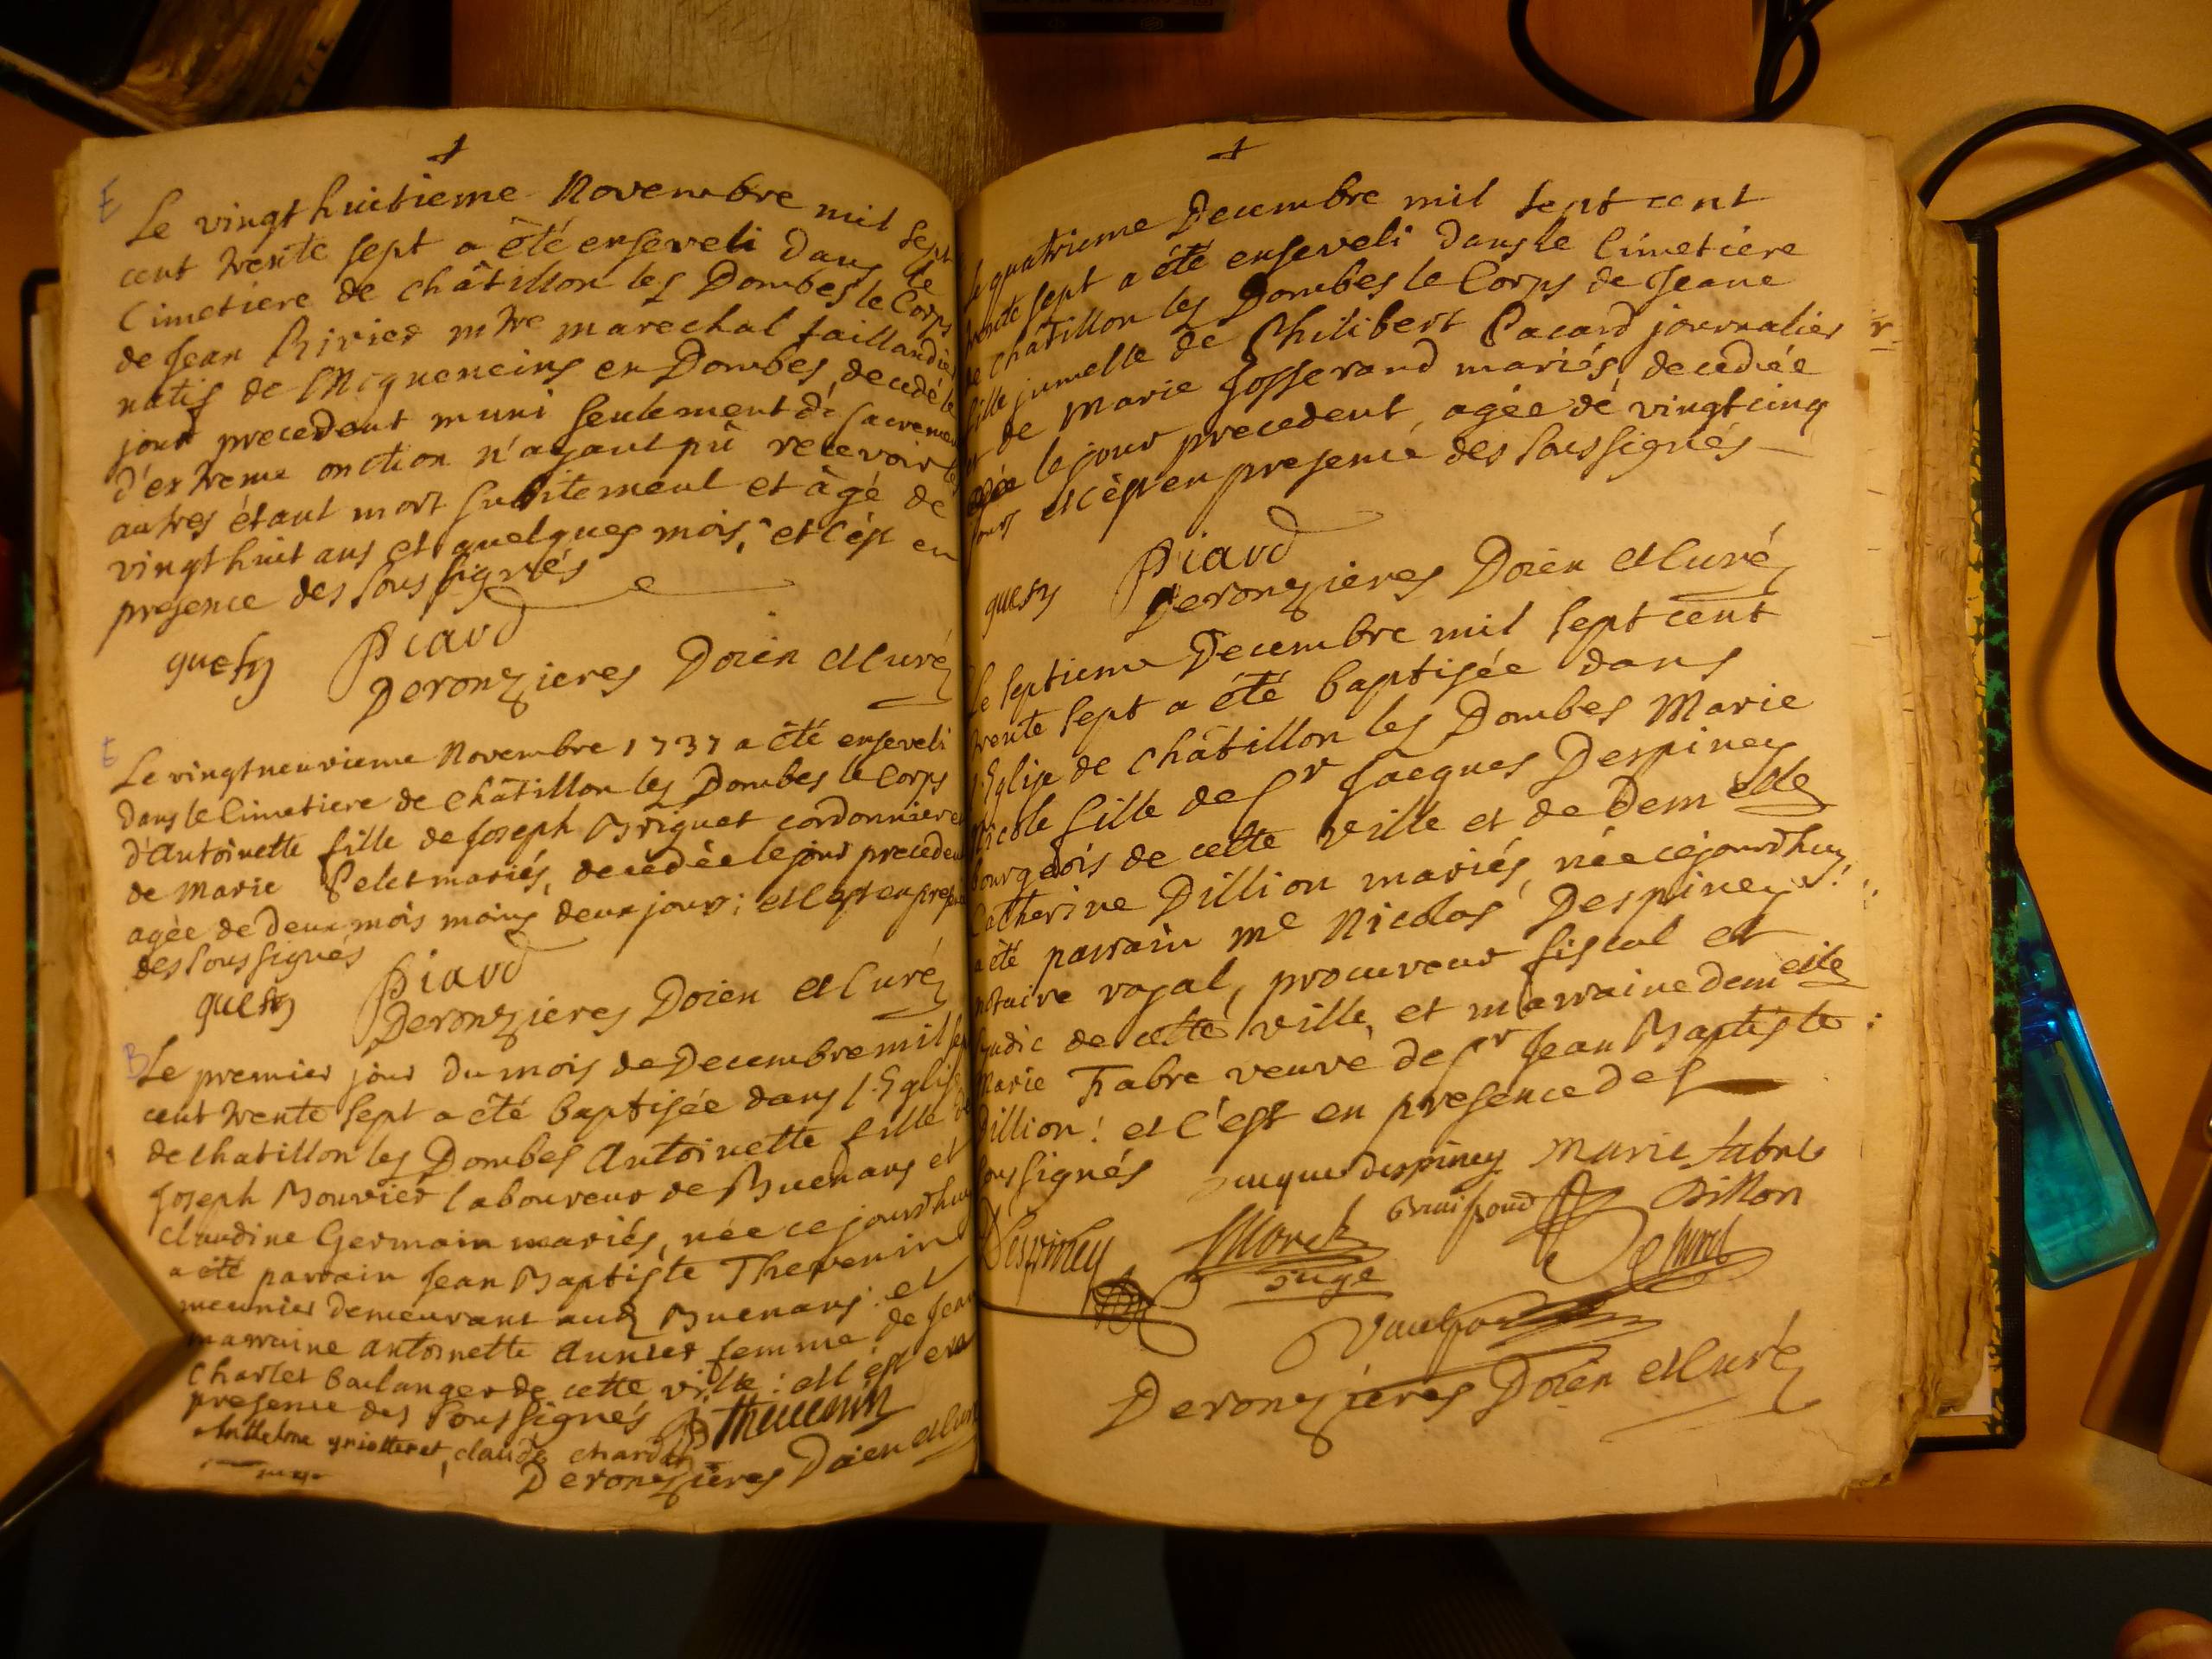 E
Le vingt huitieme Novembre mil sept
cent trente sept a été enseveli dans le
Cimetiere de châtillon les Dombes le Corps
de Jean Rivier mtre marechal taillandier
natif de Migneneins en Dombes, decedé le
jour precedent muni seulement du sacrement
d'extreme onction n'ayant pû recevoir les
autres étant mort subitement et âgé de
vingt huit ans et quelques mois, et c'est en
presence des soussignés
quesn Piaud
Deronzieres Doien et Curé
E
Le vingtneuvieme Novembre 1737 a été enseveli
dans le Cimetiere de châtillon les Dombes le Corps
d'Antoinette fille de Joseph Briguet cordonnier et
de Marie Pelet mariés, decedée le jour precedent
agée de deux mois moins deux jours; et c'est en presence
des soussignés
quesn Piaud
Deronzieres Doien et Curé
B
Le premier jour du mois de Decembre mil sept
cent trente sept a été baptisée dans l'Eglise
de chatillon les Dombes Antoinette fille de
Joseph Bouvier laboureur de Buenans et
claudine Germain mariés, née ce jourdhuy
a été parrain Jean Baptiste Thevenin
meunier demeurant aud Buenans: et
marraine antoinette Aunier femme de Jean
Charlet boulanger de cette ville: et c'est en
presence des soussignés JB Theuenin
Anthelme griotteret, claude chardt
Deronzieres Doien et Curé
Le quatrieme Decembre mil sept cent
trente sept a été enseveli dans le Cimetiere
de châtillon les Dombes le Corps de Jeane
fille jumelle de Philibert Pacard journalier
et de Marie Josserand mariés, decedée
le jour precedent, agée de vingtcinq
jours et c'est en presence des soussignés
quesn Piaud
Deronzieres Doien et Curé
Le septieme Decembre mil sept cent
trente sept a été baptisée dans
l'Eglise de châtillon les Dombes Marie
Nicole fille de Sr Jacques Despiney
bourgeois de cette ville et de Demelle
Catherine Dillion mariés, née cejourdhuy
a été parrain me Nicolas Despiney
notaire royal, procureur fiscal et
sindic de cette ville, et marraine demelle
Marie Fabre veuve de Sr Jean Baptiste
Dillion: et c'est en presence des
soussignés Jacque despiney marie fabre
Despiney Dillon
juge
Deronzieres Doien et Curé